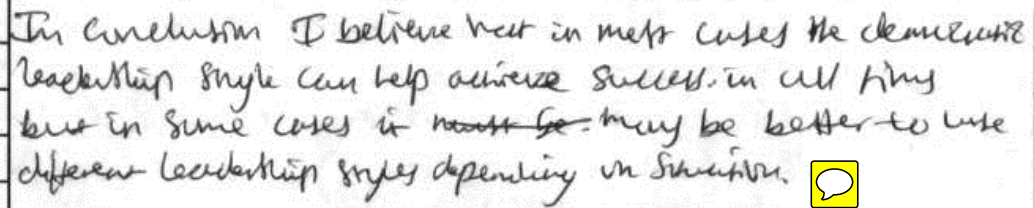 In conclusion I believe that in most cases the democratic
leadership style can help achieve success in all firms
but in some cases it must be may be better to use
different leadership styles depending on situation.